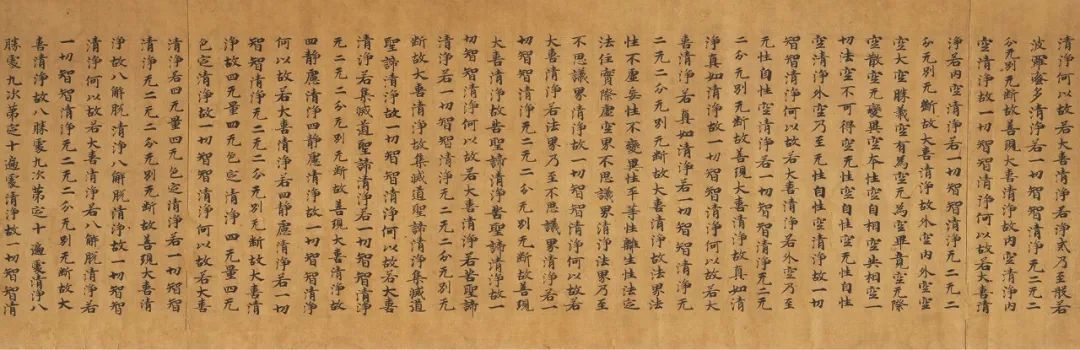 清淨何以故若大喜清淨若淨戒乃至般若
波羅蜜多清淨若一切智智清淨无二无二
分无別无斷故善現大喜清淨故內空清淨內
空清淨故一切智智清淨何以故若大喜清
淨若內空清淨若一切智智清淨无二无二
分无別无斷故大喜清淨故外空內外空空
空大空勝義空有為空无為空畢竟空无際
空散空无變異空本性空自相空共相空一
切法空不可得空无性空自性空无性自性
空清淨外空乃至无性自性空清淨故一切
智智清淨何以故若大喜清淨若外空乃至
无性自性空清淨若一切智智清淨无二无
二分无別无斷故善現大喜清淨故真如清
淨真如清淨故一切智智清淨何以故若大
喜清淨若真如清淨若一切智智清淨无
二无二分无別无斷故大喜清淨故法界法
性不虛妄性不變異性平等性離生性法定
法住實際虛空界不思議界清淨法界乃至
不思議界清淨故一切智智清淨何以故若
大喜清淨若法界乃至不思議界清淨若一
切智智清淨无二无二分无別无斷故善現
大喜清淨故苦聖諦清淨苦聖諦清淨故一
切智智清淨何以故若大喜清淨若苦聖諦
清淨若一切智智清淨无二无二分无別无
斷故大喜清淨故集滅道聖諦清淨集滅道
聖諦清淨故一切智智清淨何以故若大喜
清淨若集滅道聖諦清淨若一切智智清淨
无二无二分无別无斷故善現大喜清淨故
四靜慮清淨四靜慮清淨故一切智智清淨
何以故若大喜清淨若四靜慮清淨若一切
智智清淨无二无二分无別无斷故大喜清
淨故四无量四无色定清淨四无量四无
色定清淨故一切智智清淨何以故若大喜
清淨若四无量四无色定清淨若一切智智
清淨无二无二分无別无斷故善現大喜清
淨故八解脫清淨八解脫清淨故一切智智
清淨何以故若大喜清淨若八解脫清淨若
一切智智清淨无二无二分无別无斷故大
喜清淨故八勝處九次第定十遍處清淨八
勝處九次第定十遍處清淨故一切智智清